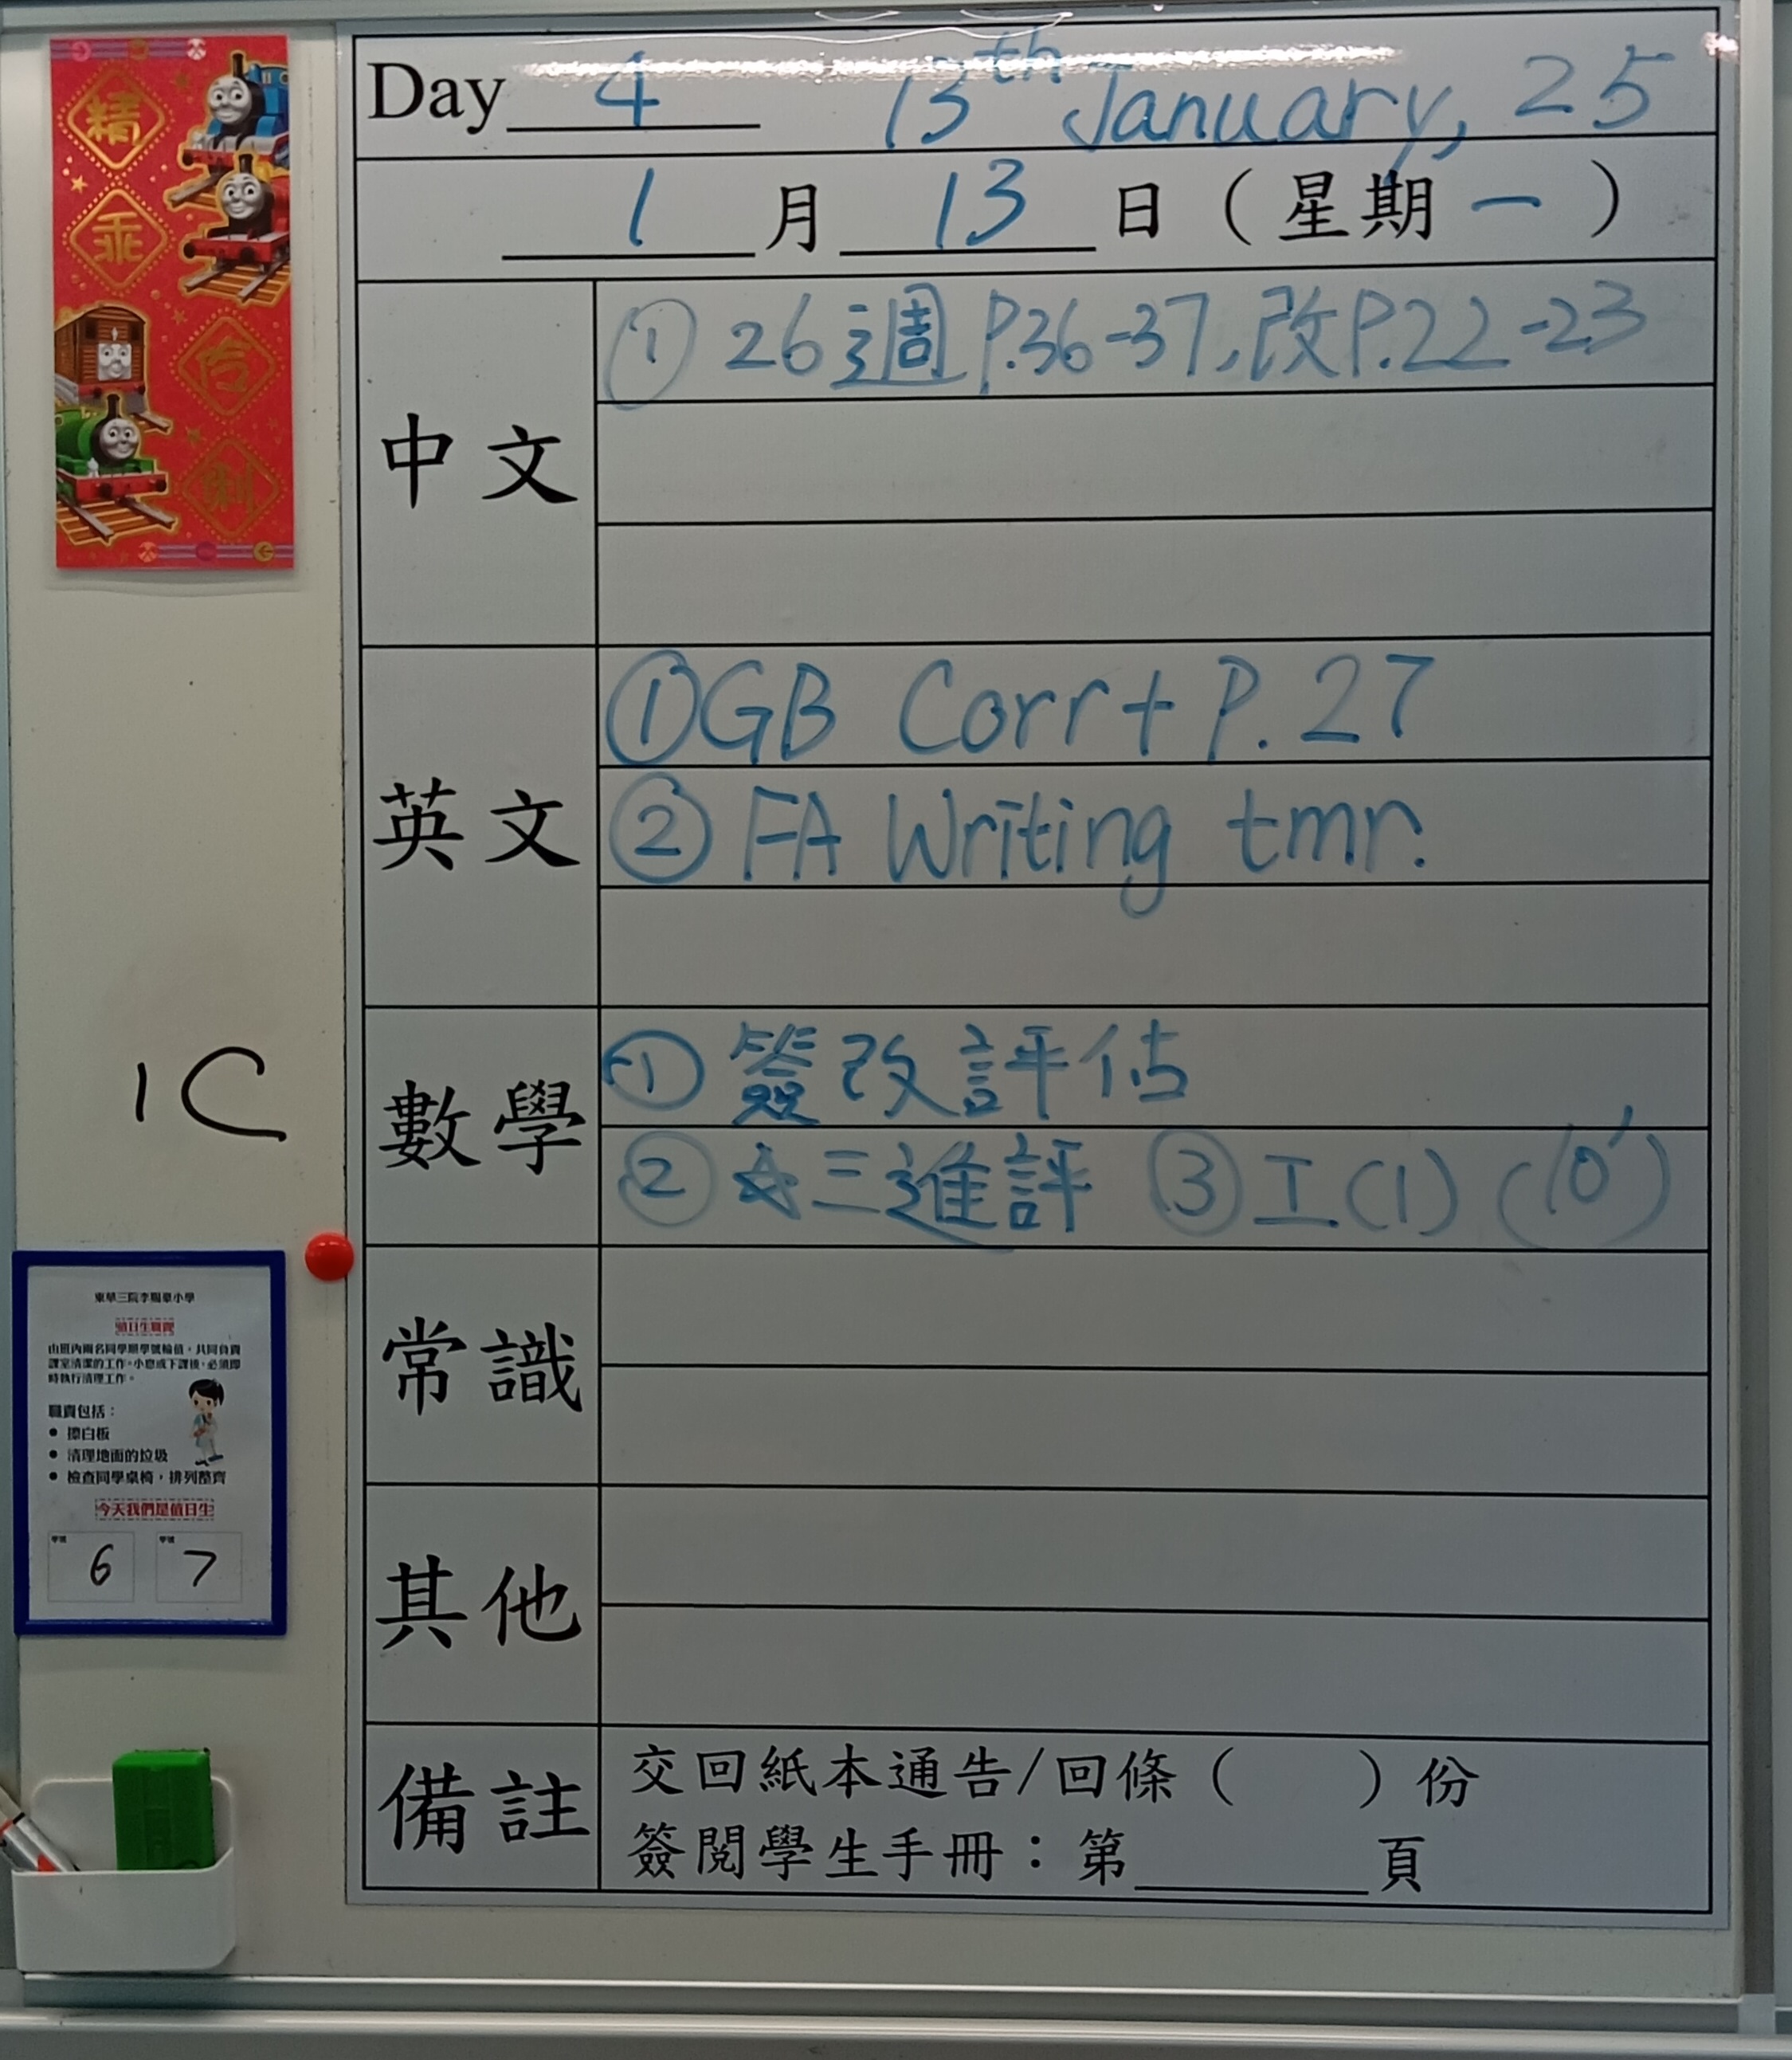 精
乖
合
則
Day 4 13th January, 25
1 月 13 日 ( 星期 一 )
中文
① 26週 P.36-37, 改P.22-23
英文
① GB Corr + P.27
② FA Writing tmr.
數學
① 簽改評估
② ☆三進評 ③ 工(1) (10')
常識
其他
備註
交回紙本通告/回條 ( ) 份
簽閱學生手冊：第 頁
1C
值日生職責
由班內兩名同學順學號輪值，共同負責
課室清潔的工作。小息或下課後，必須即
時執行清理工作。
職責包括：
● 擦白板
● 清理地面的垃圾
● 檢查同學桌椅，排列整齊
今天我們是值日生
學號 學號
6 7